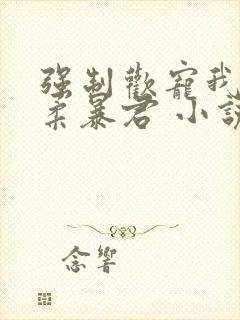 强制歡寵我
柔暴君 小說
念響